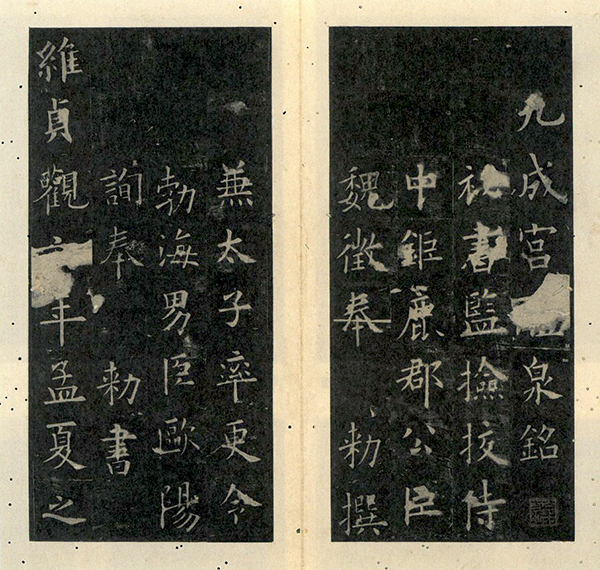 九成宮泉銘
秘書監撿挍侍
中鉅鹿郡公臣
魏徵奉 勅撰
兼太子率更令
勃海男臣歐陽
詢奉 勅書
維貞觀六年孟夏之